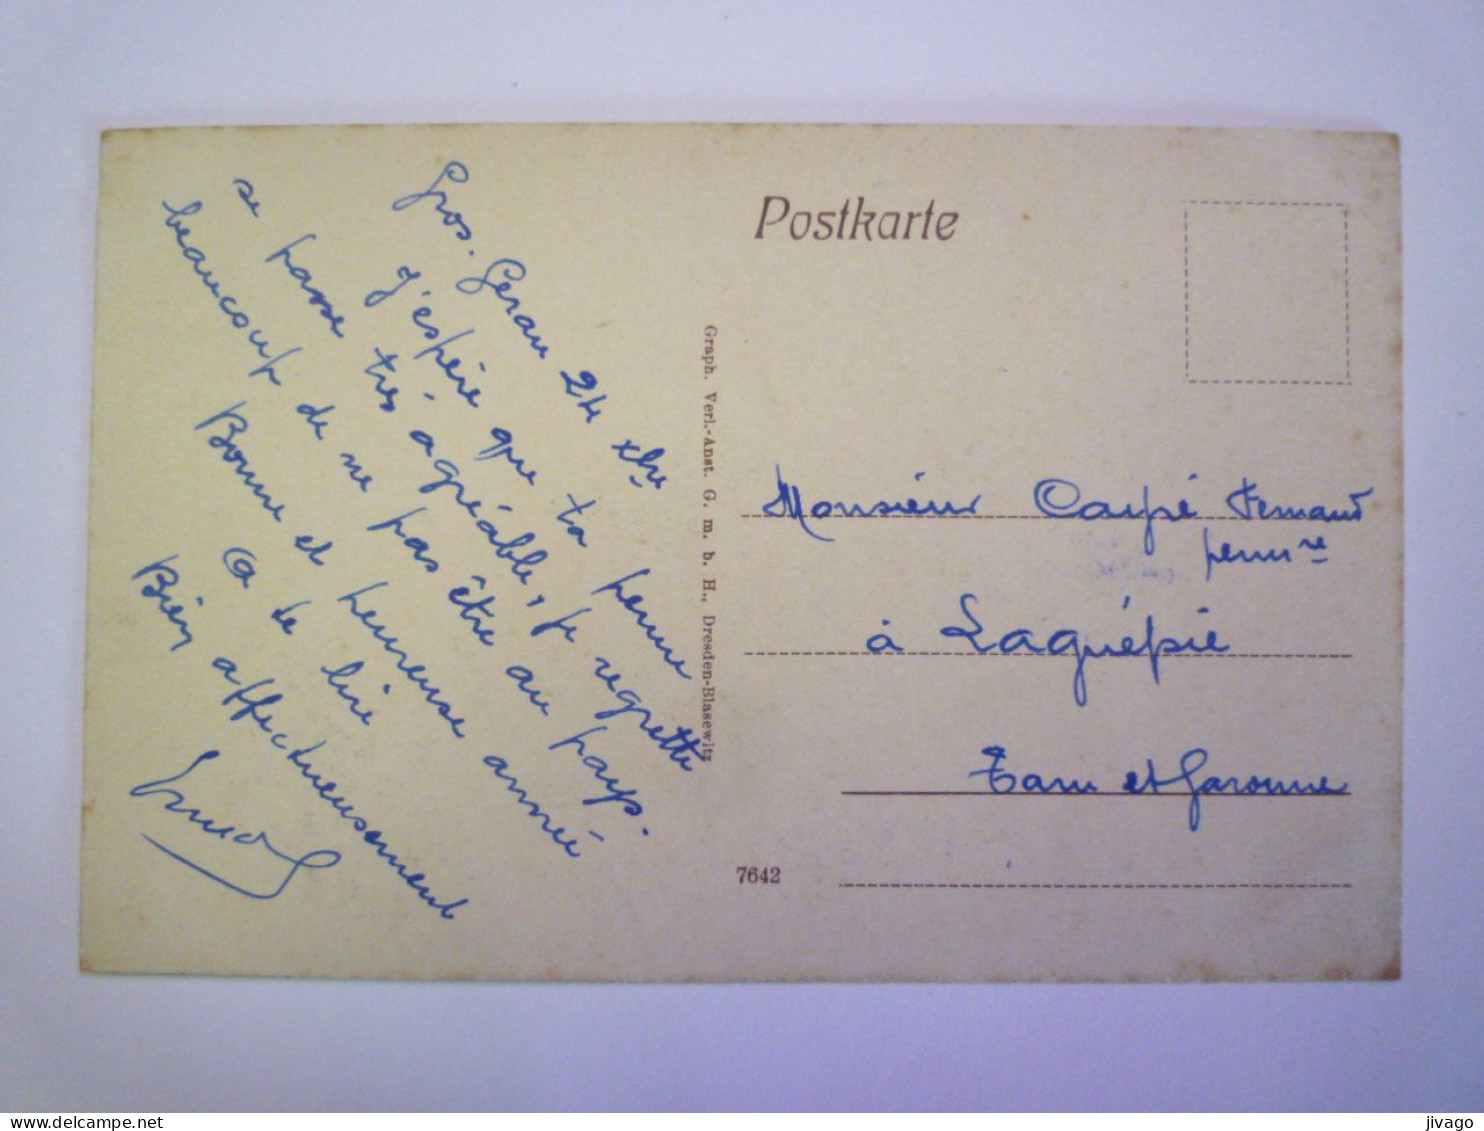 Gros. Gerau 24 xbre
J'espère que ta permе
se passe très agréable, je regrette
beaucoup de ne pas être au pays.
Bonne et heureuse année
A te lire
Bien affectueusement
Postkarte
Graph. Verl.-Anst. G. m. b. H., Dresden-Blasewitz
Monsieur Carpé Fernand
permre
à Laguépie
Tarn et Garonne
7642
jivago